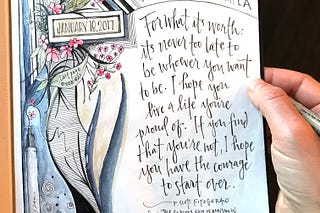 JANUARY 18, 2017
For what it's worth:
it's never to late to
be whoever you want
to be. I hope you
live a life you're
proof of. If you find
that you're not, I hope
you have the courage
to start over.
F. SCOTT FITZGERALD